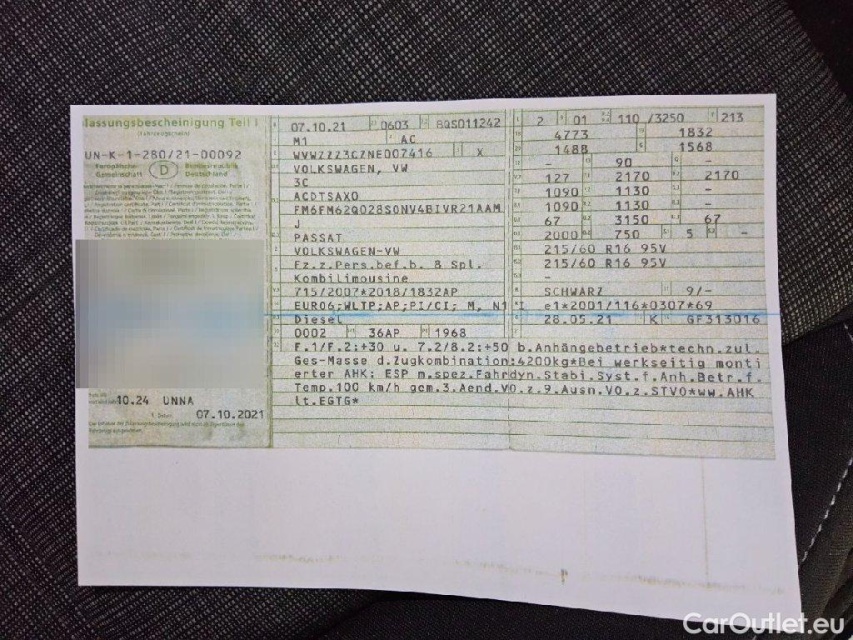 lassungsbescheinigung Teil I
(Fahrzeugschein)
UN-K-1-280/21-00092
Europäische Gemeinschaft
D
Bundesrepublik Deutschland
10.24 UNNA
07.10.2021
07.10.21 0603 BQS011242
M1 AC
WVWZZZ3CZNE007416 X
VOLKSWAGEN, VW
3C
ACDTSAX0
FM6FM62Q028S0NV4BIVR21AAM
J
PASSAT
VOLKSWAGEN-VW
Fz.z.Pers.bef.b. 8 Spl.
Kombilimousine
715/2007*2018/1832AP
EURO6;WLTP;AP;PI/CI; M, N1 I
Diesel
0002 36AP 1968
2 01 110 /3250 213
4773 1832
1488 1568
- 90 -
127 2170 2170
1090 1130 -
1090 1130 -
67 3150 67
2000 750 5 -
215/60 R16 95V
215/60 R16 95V
-
SCHWARZ 9/-
e1*2001/116*0307*69
28.05.21 K GF313016
F.1/F.2:+30 u. 7.2/8.2:+50 b.Anhängebetrieb*techn.zul.
Ges-Masse d.Zugkombination:4200kg*Bei werkseitig monti
erter AHK: ESP m.spez.Fahrdyn.Stabi.Syst.f.Anh.Betr.f.
Temp.100 km/h gem.3.Aend.VO.z.9.Ausn.VO.z.STVO*ww.AHK
lt.EGTG*
CarOutlet.eu